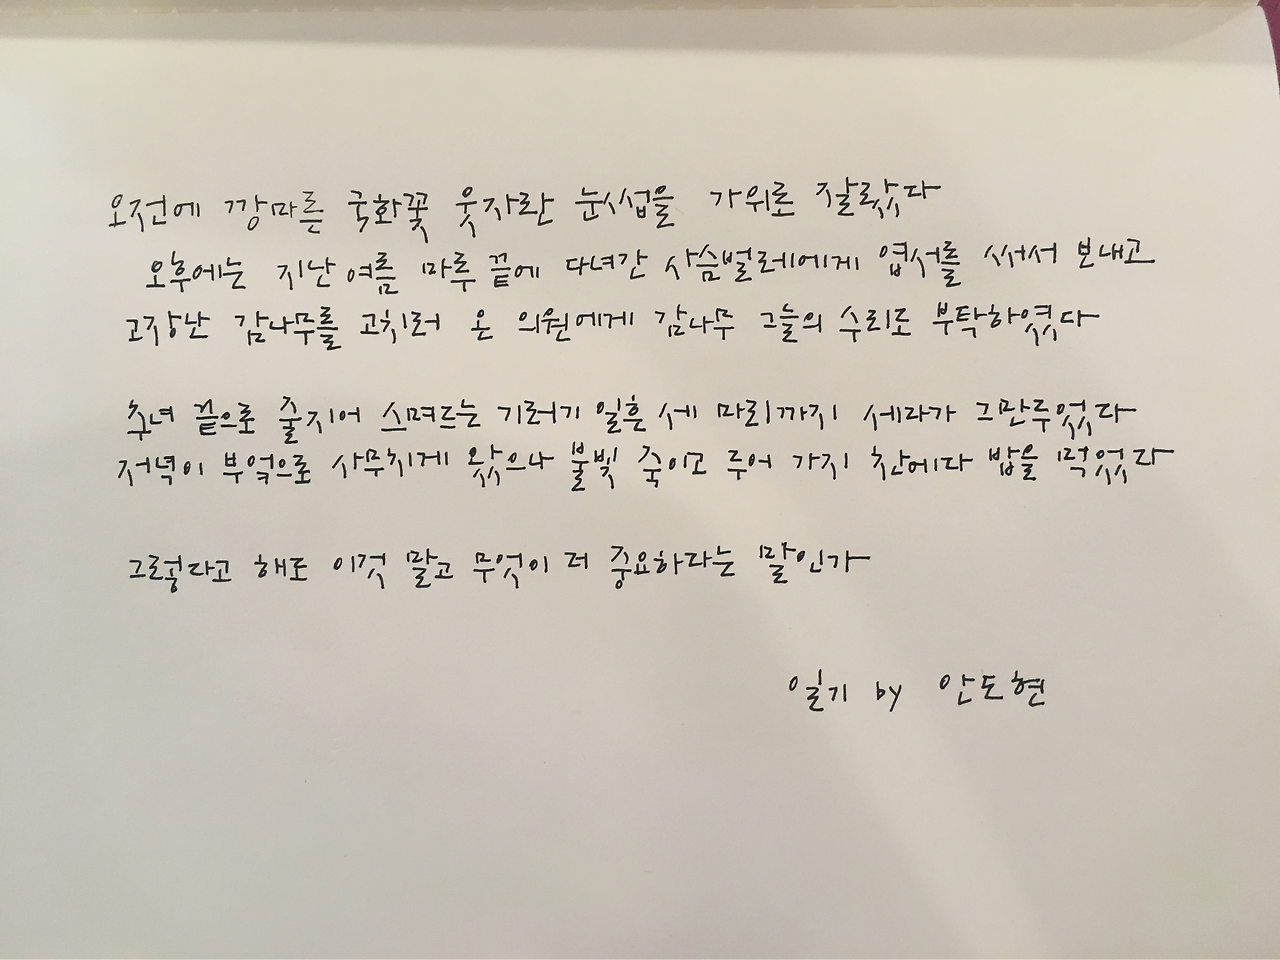 오전에 깡마른 국화꽃 웃자란 눈썹을 가위로 잘랐다
오후에는 지난 여름 마루 끝에 다녀간 사슴벌레에게 엽서를 써서 보내고
고장난 감나무를 고치러 온 의원에게 감나무 그늘의 수리도 부탁하였다
추녀 끝으로 줄지어 스며드는 기러기 일흔 세 마리까지 세다가 그만두었다
저녁이 부엌으로 사무치게 왔으나 불빛 죽이고 두어 가지 찬에다 밥을 먹었다
그렇다고 해도 이것 말고 무엇이 더 중요하다는 말인가
일기 by 안도현